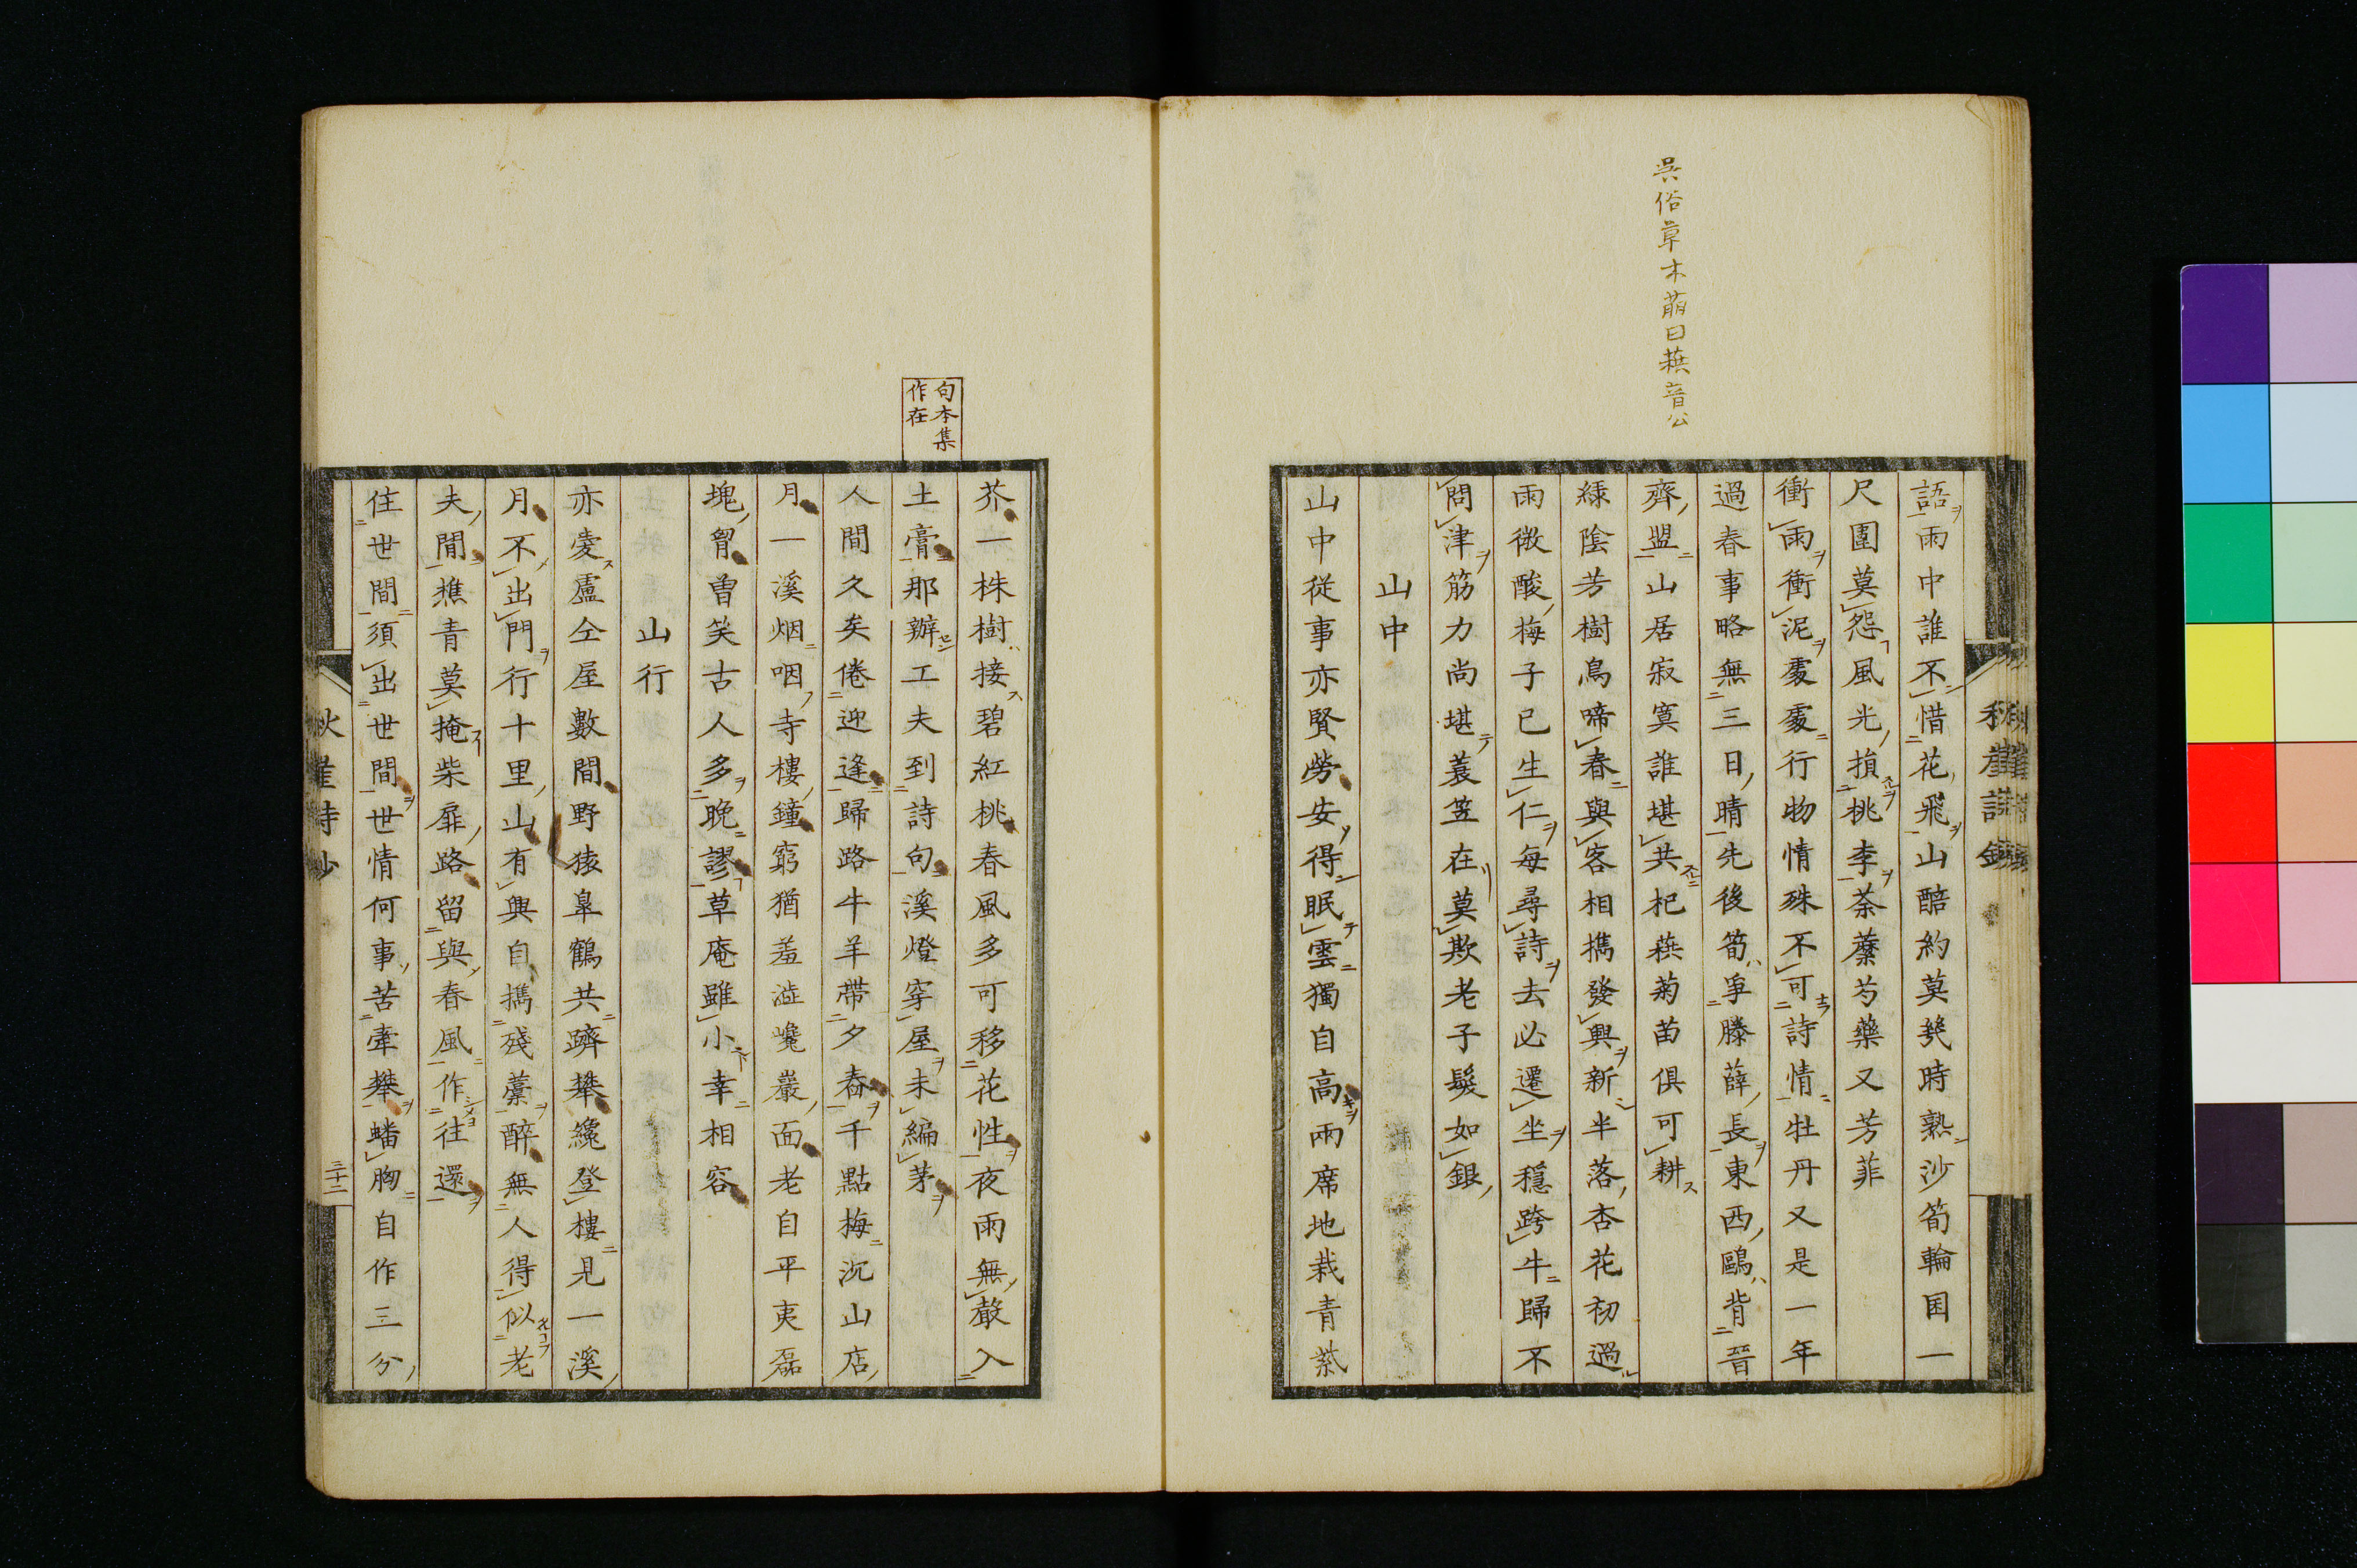 吳俗草木萠曰蕻音公
語雨中誰不惜花飛山醅約莫幾時熟沙筍輪囷一
尺圍莫怨風光損桃李荼蘼芍藥又芳菲
衝雨衝泥處處行物情殊不可詩情牡丹又是一年
過春事略無三日晴先後筍爭滕薛長東西鷗背晉
齊盟山居寂寞誰堪共杞蕻菊苗俱可耕
綠陰芳樹鳥啼春與客相攜發興新半落杏花初過
雨微酸梅子已生仁每尋詩去必遷坐穩跨牛歸不
問津筋力尚堪蓑笠在莫欺老子髮如銀
山中
山中從事亦賢勞安得眠雲獨自高兩席地栽青蒸
句本集
作在
芥一株樹接碧紅桃春風多可移花性夜雨無聲入
土膏那辦工夫到詩句溪燈穿屋未編茅
人間久矣倦迎逢歸路牛羊帶夕舂千點梅沉山店
月一溪烟咽寺樓鐘窮猶羞澁巉巖面老自平夷磊
塊胷曾笑古人多晚謬草庵雖小幸相容
山行
亦愛盧仝屋數間野猿臯鶴共躋攀纔登樓見一溪
月不出門行十里山有興自攜殘藁醉無人得似老
夫閒樵青莫掩柴扉路留與春風作往還
住世間須出世間世情何事苦牽攀蟠胸自作三分
秋崖詩鈔
三十二